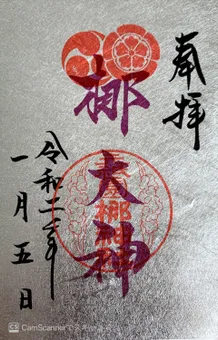 奉拝
梛
大神
令和二年
一月五日
CS CamScanner